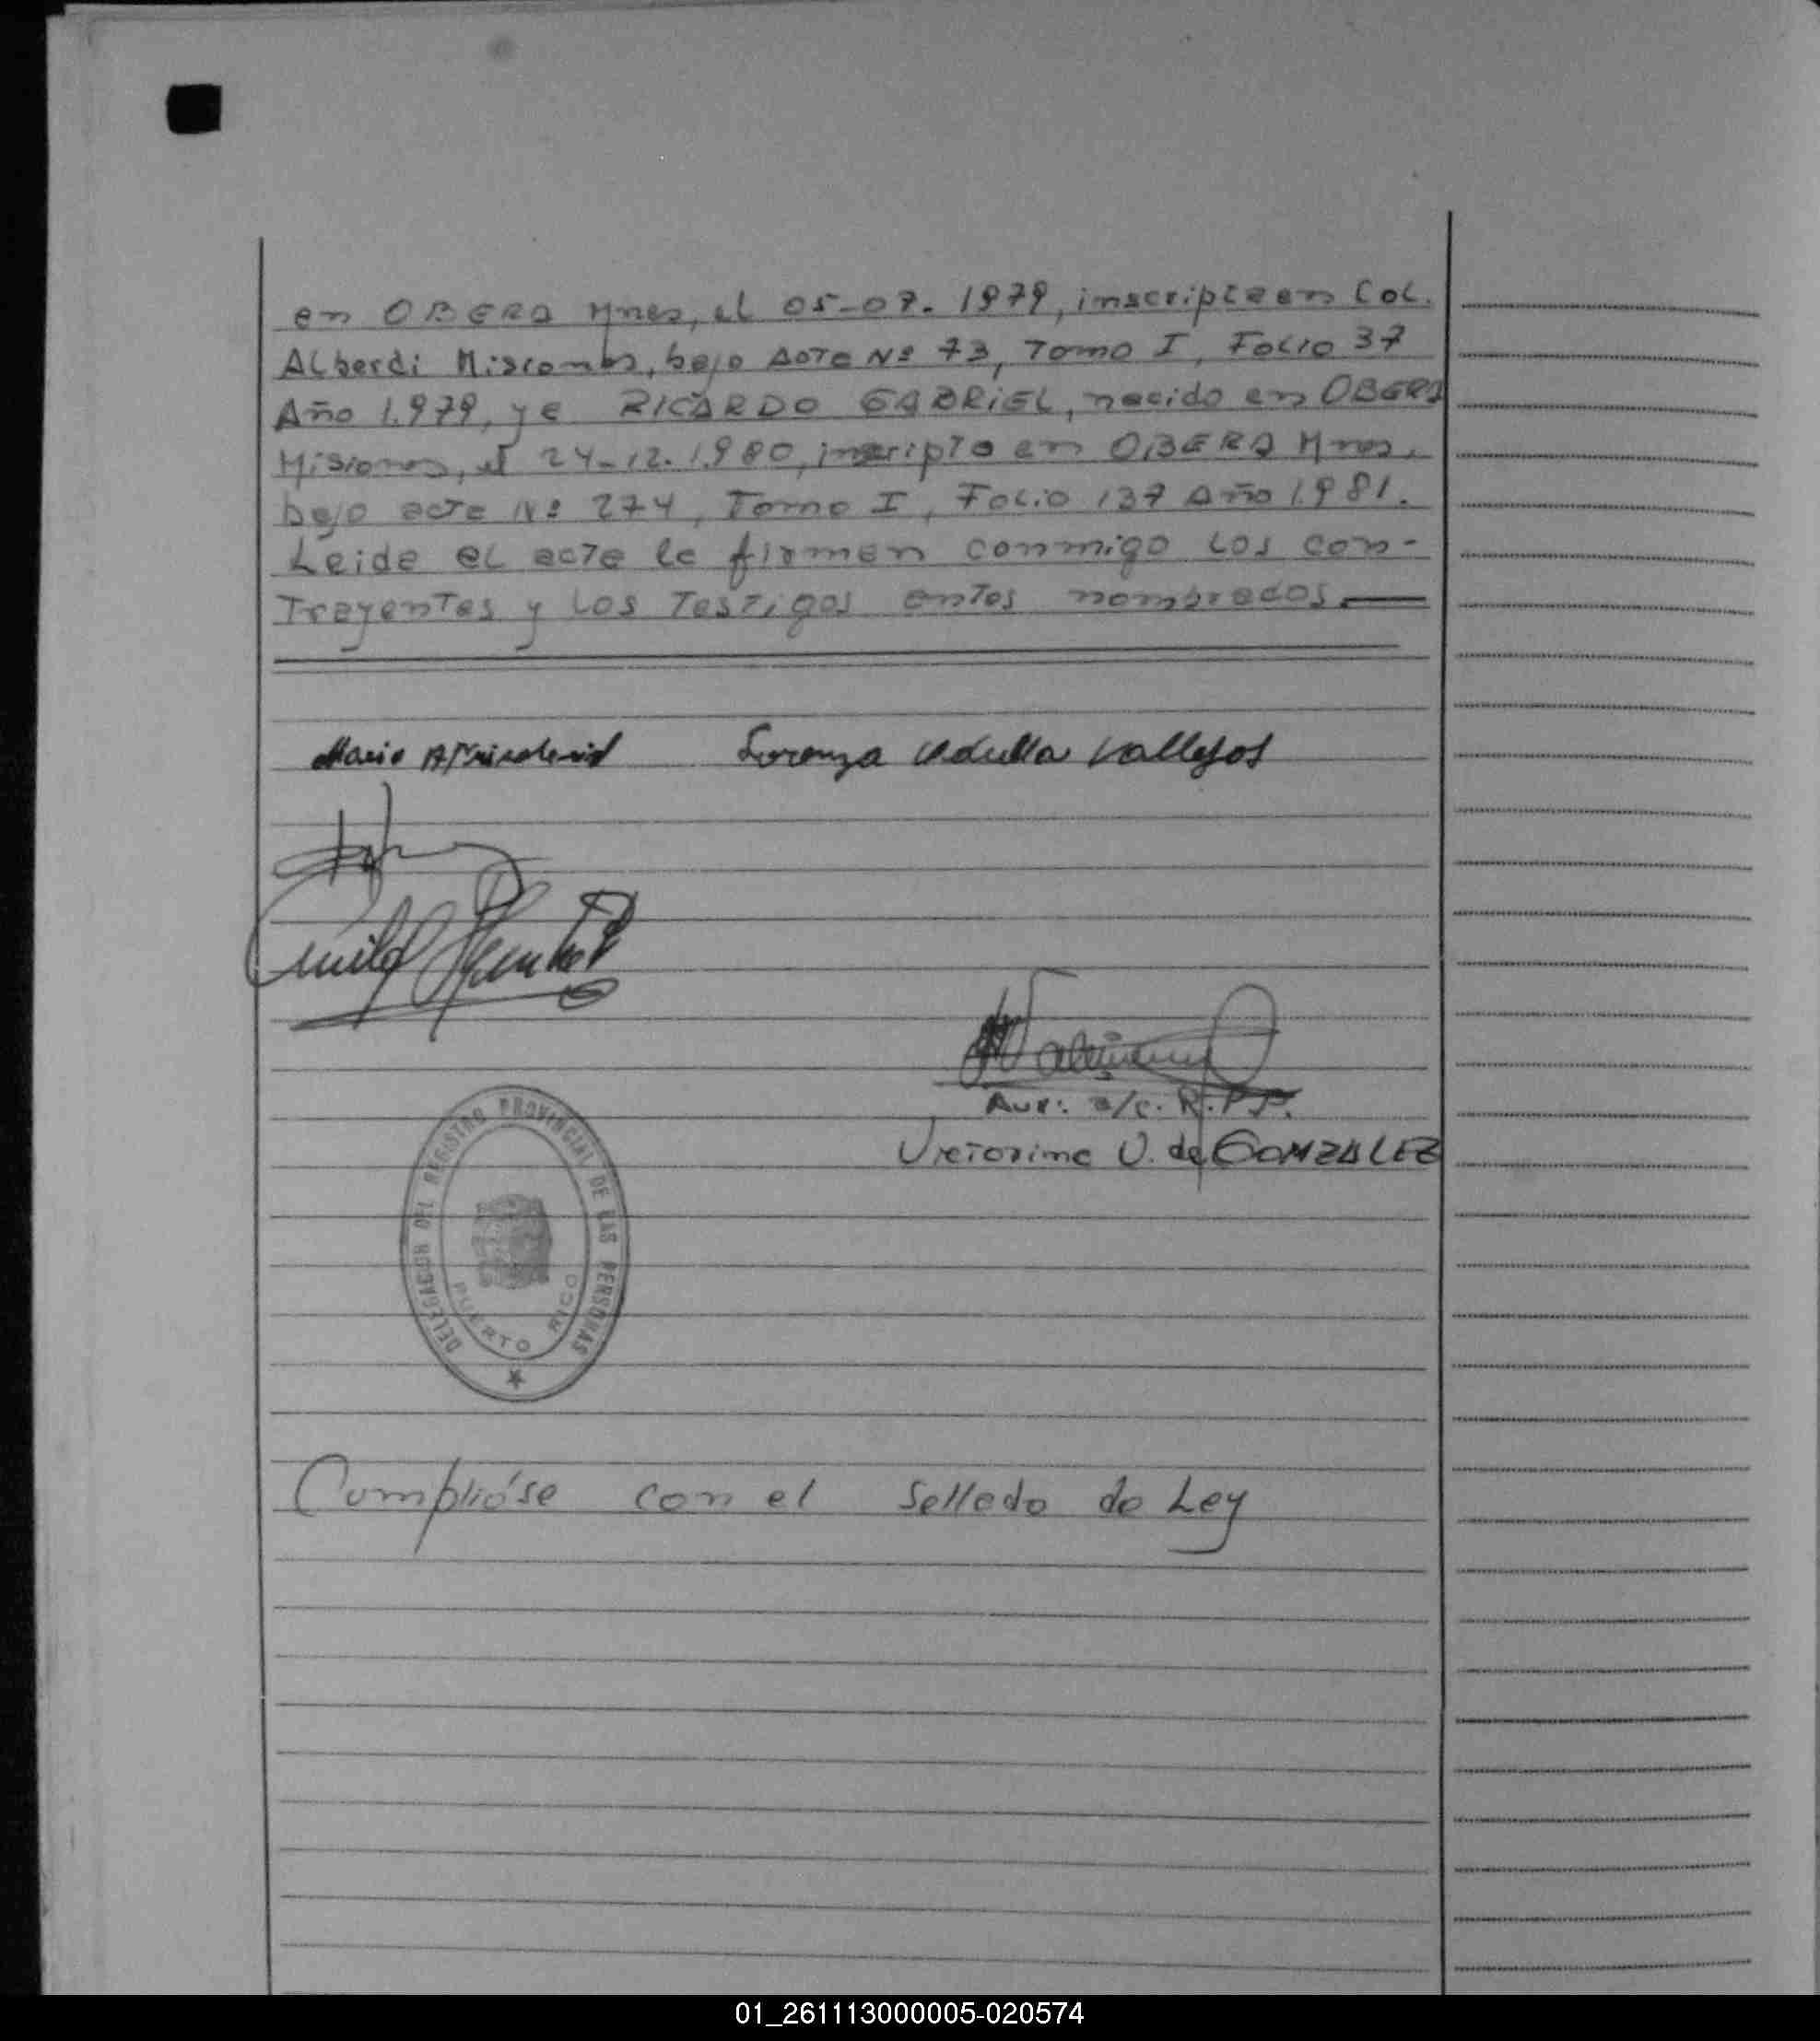 en OBERA Mnes, el 05-07-1979, inscripta en Col.
Alberdi Misiones, bajo Acta Nº 73, Tomo I, Folio 37
Año 1.979, y a RICARDO GABRIEL, nacido en OBERA
Misiones, el 24-12-1.980, inscripto en OBERA Mnes,
bajo acta Nº 274, Tomo I, Folio 137 Año 1.981.
Leida el acta la firman conmigo los con-
trayentes y los Testigos antes nombrados.
Mario A Lorenza Vallejos
Aux: a/c. R.P.P.
Victorina V. de GONZALEZ
DELEGACION DEL REGISTRO PROVINCIAL DE LAS PERSONAS
PUERTO RICO
Cumplióse con el Sellado de Ley
01_261113000005-020574